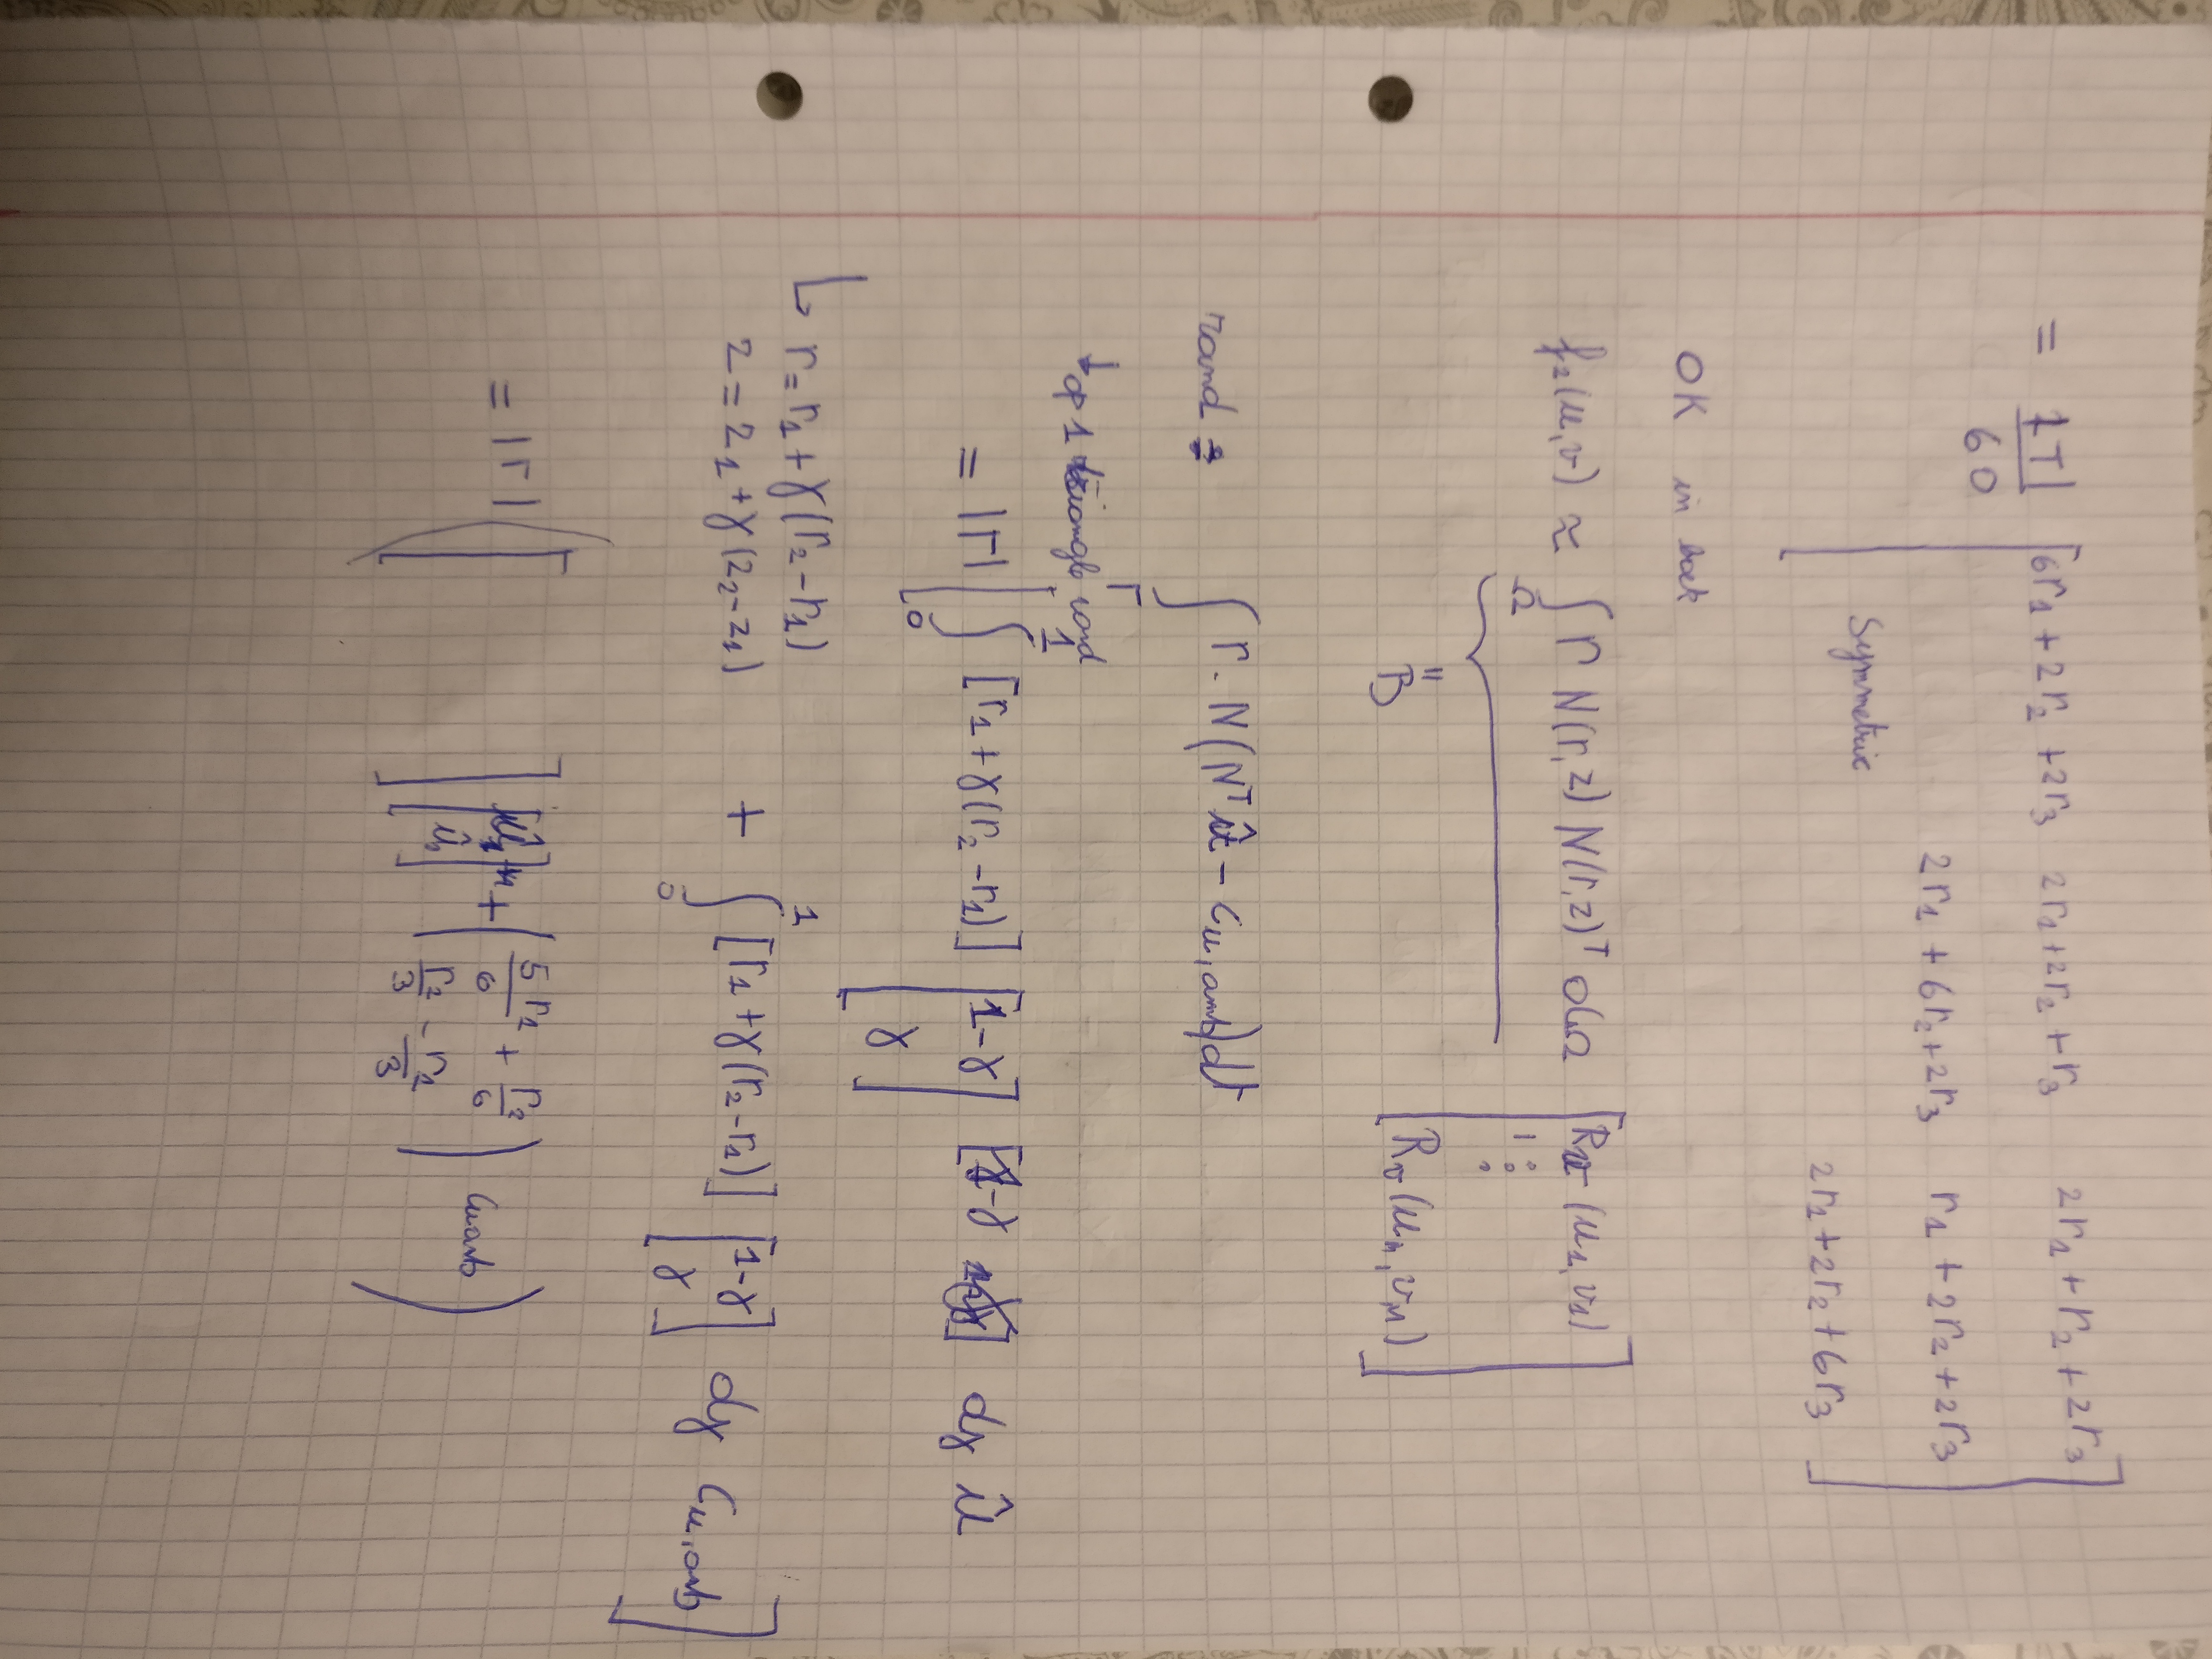 = |T|/60 [ 6r₁+2r₂+2r₃ 2r₁+2r₂+r₃ 2r₁+r₂+2r₃
2r₁+6r₂+2r₃ r₁+2r₂+2r₃
Symmetric 2r₁+2r₂+6r₃ ]
OK in boek
f₂(u,v) ≈ ∫_Ω r N(r,z) N(r,z)ᵀ dΩ [ Rv(u₁,v₁)
⋮
" B Rv(u_M,v_M) ]
rand
∫_Γ r. N(Nᵀû - C_u,amb)dΓ
↓ op 1 triangle rand
= |Γ| [ ∫₀¹ [r₁+γ(r₂-r₁)] [ 1-γ
γ ] [1-γ γ] dγ û
↳ r = r₁+γ(r₂-r₁)
z = z₁+γ(z₂-z₁) + ∫₀¹ [r₁+γ(r₂-r₁)] [ 1-γ
γ ] dγ C_u,amb ]
= |Γ| ( [ ] [ û₁
û₂ ] + ( 5/6 r₁ + r₂/6
r₂/3 - r₁/3 ) C_uamb )